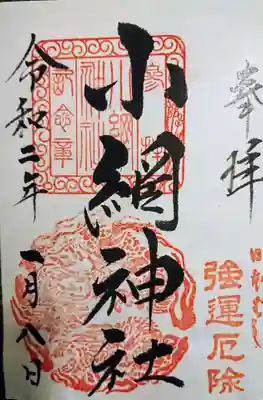 奉拝
強運厄除
小網神社
令和二年
一月八日